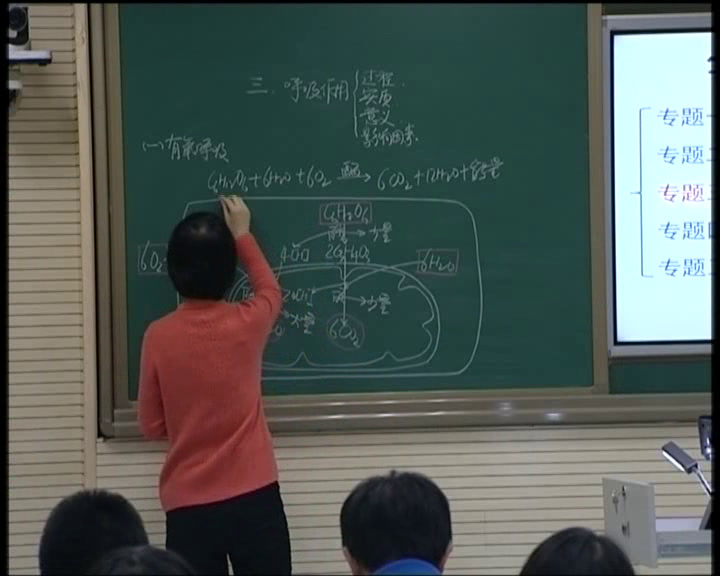 三、呼吸作用
过程
实质
意义
影响因素
(一)有氧呼吸
C₆H₁₂O₆+6H₂O+6O₂ 酶→ 6CO₂+12H₂O+能量
C₆H₁₂O₆
酶→少量
6O₂
4[H]
2C₃H₄O₃
6H₂O
20[H]
酶→少量
大量
6CO₂
专题
专题
专题
专题
专题